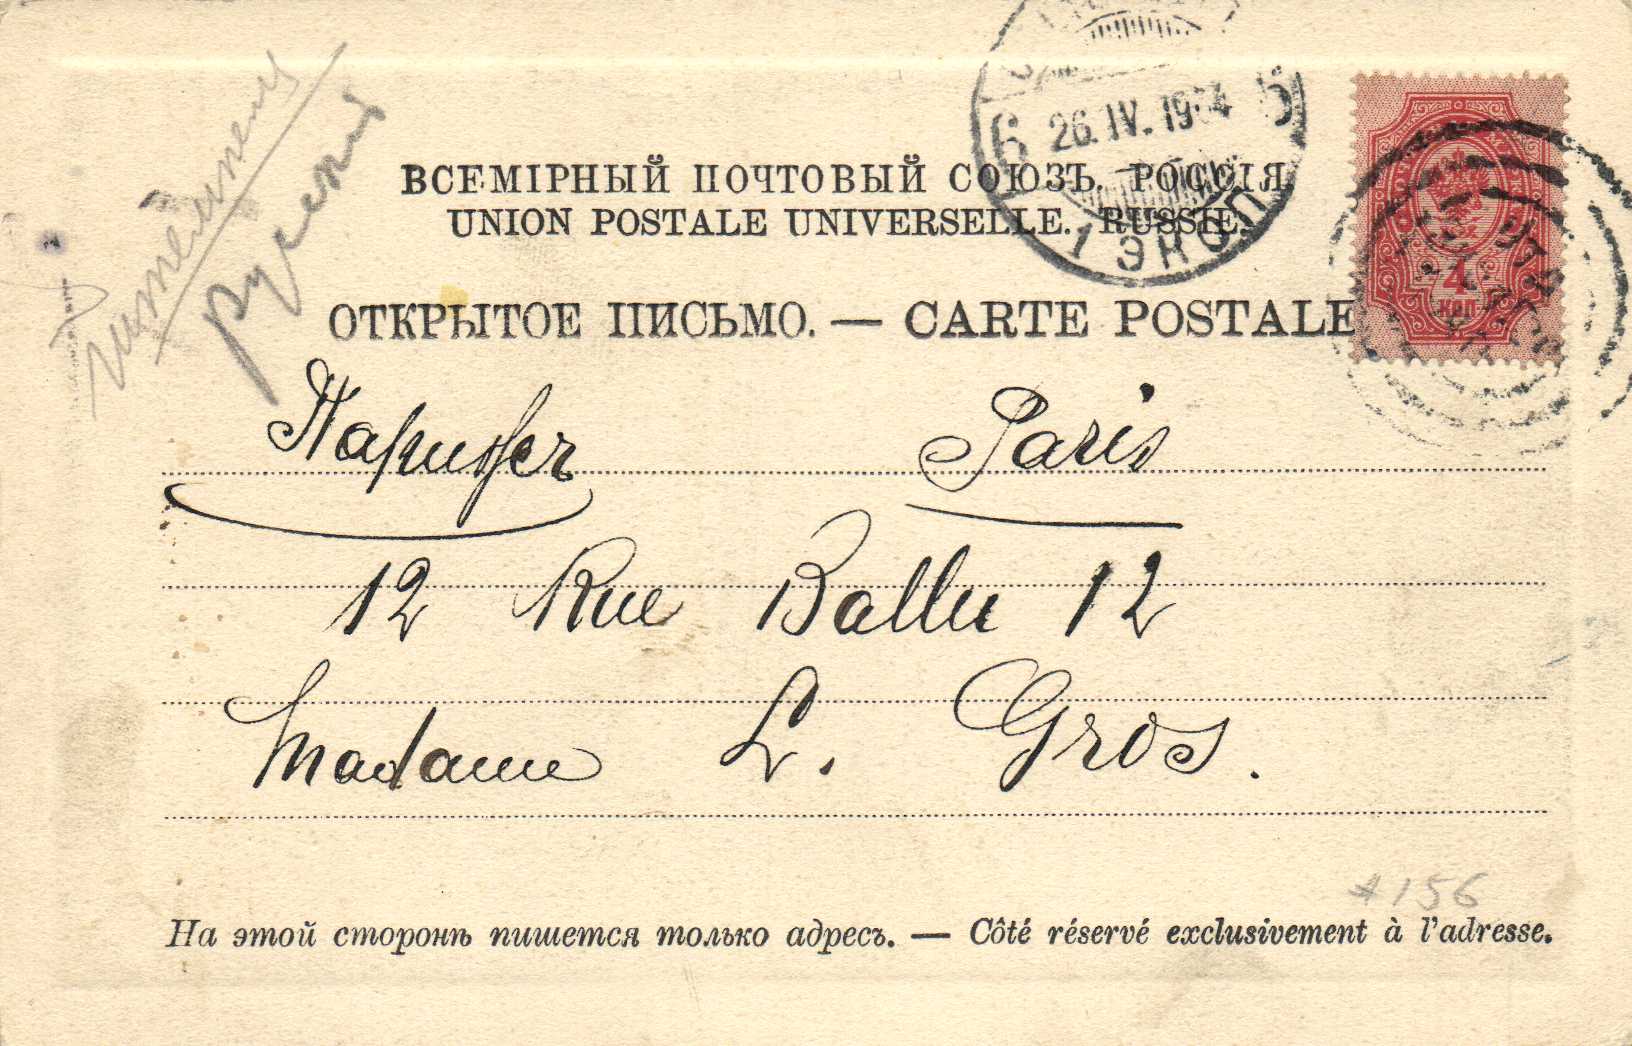 ВСЕМІРНЫЙ ПОЧТОВЫЙ СОЮЗЪ. РОССІЯ.
UNION POSTALE UNIVERSELLE. RUSSIE.
ОТКРЫТОЕ ПИСЬМО. — CARTE POSTALE
6 26.IV.1904 6
1 ЭКСП
4
КОП
Парижъ Paris
12 Rue Ballu 12
Madame L. Gros.
*156
На этой сторонѣ пишется только адресъ. — Côté réservé exclusivement à l'adresse.